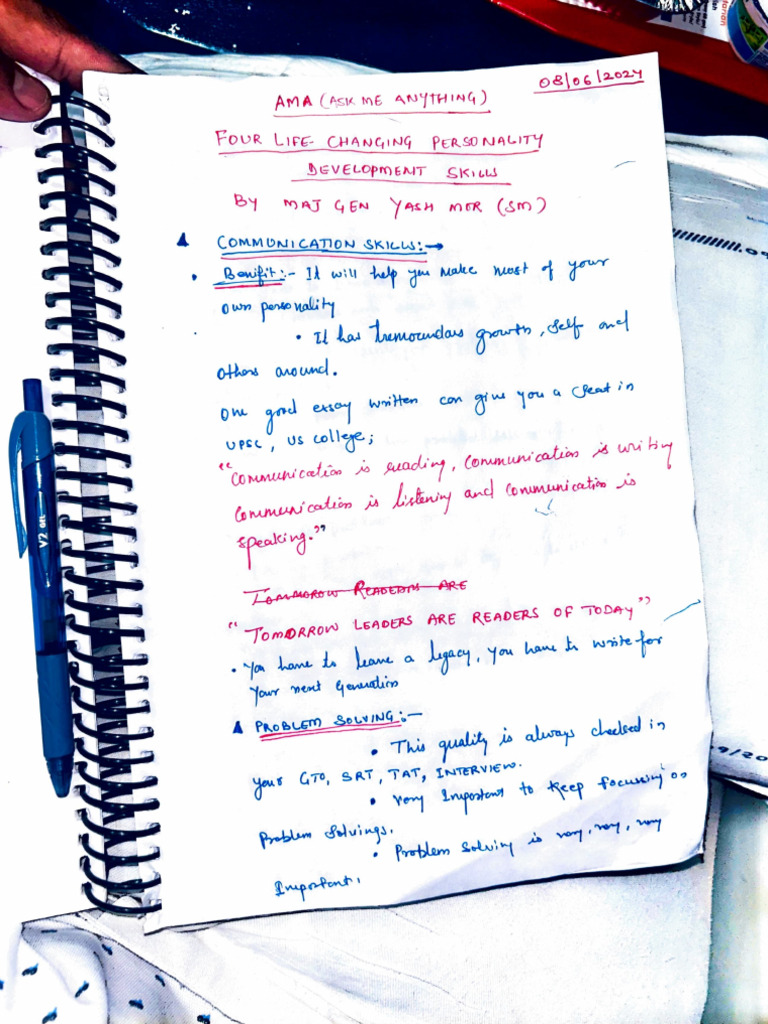 08/06/2024
AMA (ASK ME ANYTHING)
FOUR LIFE-CHANGING PERSONALITY
DEVELOPMENT SKILLS
BY MAJ GEN YASH MOR (SM)
COMMUNICATION SKILLS:→
• Benifit:- It will help you make most of your
own personality
• It has tremoundars growth, self and
others around.
One good essay written can give you a seat in
UPSC, US college;
"Communication is reading, communication is writing
communication is listening and communication is
speaking."
TOMMOROW READERS ARE
"TOMORROW LEADERS ARE READERS OF TODAY"
• You have to leave a legacy, you have to write for
your next Generation
PROBLEM SOLVING:-
• This quality is always checked in
your GTO, SRT, TAT, INTERVIEW.
• very Important to keep focussing on
Problem Solvings.
• Problem Solving is very, very, very
Important.
V2